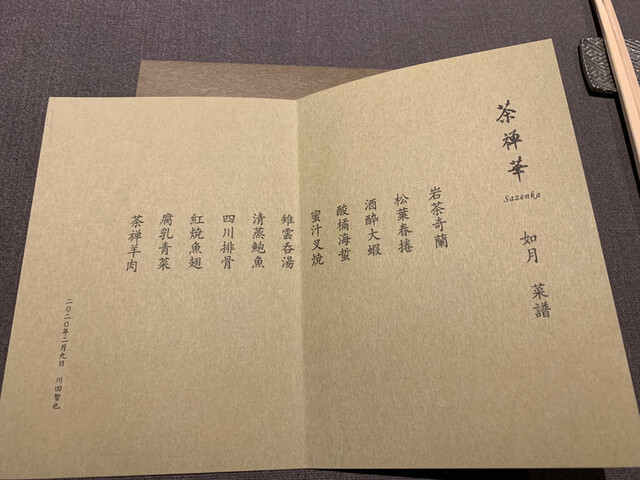 茶禅華
Sazenka
如月 菜譜
岩茶奇蘭
松葉春捲
酒醉大蝦
酸橘海蜇
蜜汁叉焼
雉雲呑湯
清蒸鮑魚
四川排骨
紅焼魚翅
腐乳青菜
茶禅羊肉
二〇二〇年二月九日 川田智也